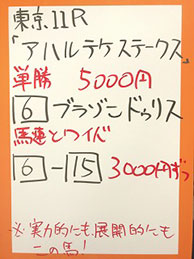 東京11R
「アハルテケステークス」
単勝 5000円
6 ブラゾンドゥリス
馬連とワイド
6-15 3000円ずつ
※実力的にも、展開的にも
この馬!